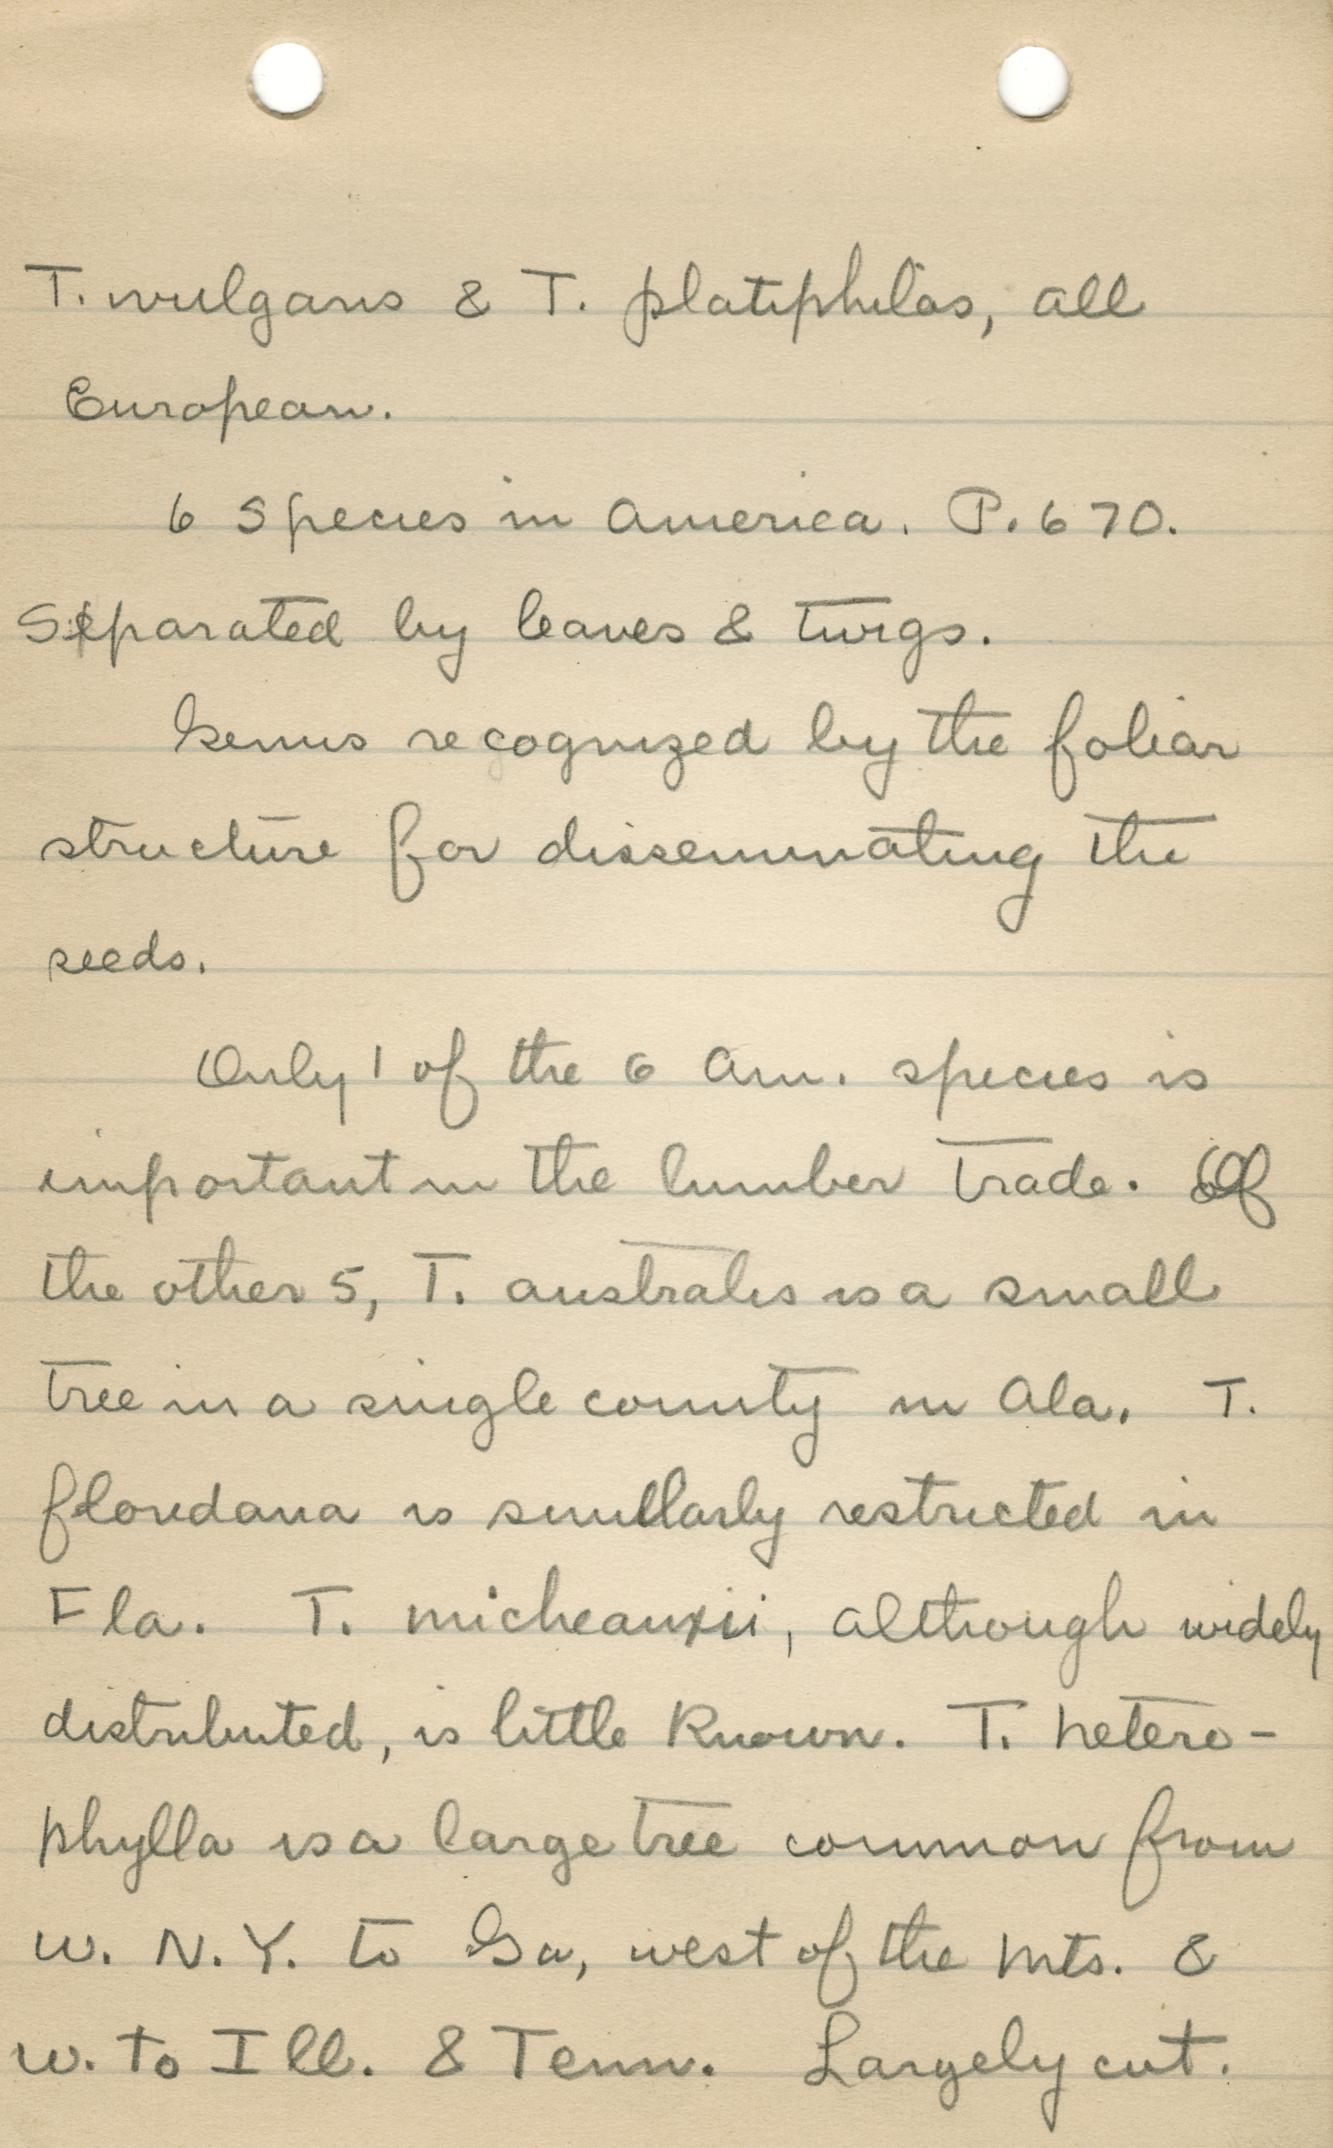 T. vulgaris & T. platiphilos, all
European.
6 Species in America. P. 670.
Separated by leaves & twigs.
Genus recognized by the foliar
structure for disseminating the
seeds.
Only 1 of the 6 Am. species is
important in the lumber trade. Of
the other 5, T. australis is a small
tree in a single county in Ala. T.
floridana is simillarly restricted in
Fla. T. micheauxii, although widely
distributed, is little known. T. hetero-
phylla is a large tree common from
w. N.Y. to Ga, west of the Mts. &
w. to Ill. & Tenn. Largely cut.